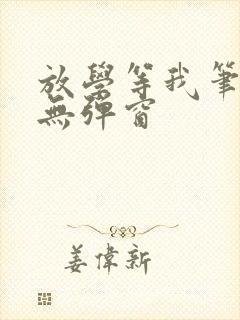 放學等我筆
無彈窗
姜偉新